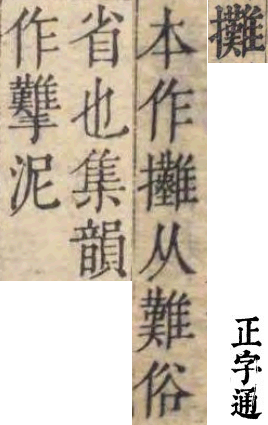 攤
本作攤从難俗
省也集韻
作泥
正字通